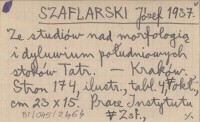 SZAFLARSKI Józef 1937.
Ze studiów nad morfologią
i dyluwium południowych
stoków Tatr. — Kraków.
Stron 174, ilustr., tabl. 4 + okł.,
cm 23 x 15. Prace Instytutu